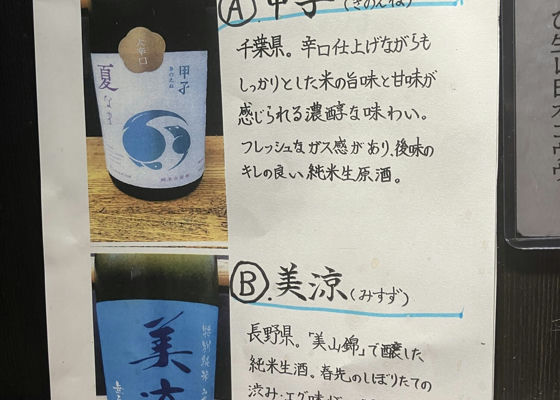 Ⓐ 甲子(きのえね)
千葉県。辛口仕上げながらも
しっかりとした米の旨味と甘味が
感じられる濃醇な味わい。
フレッシュなガス感があり、後味の
キレの良い純米生原酒。
大辛口
甲子
きのえね
夏なま
純米生原酒
Ⓑ.美涼(みすず)
長野県。「美山錦」で醸した
純米生酒。春先のしぼりたての
渋み・エグ味が
美涼
特別純米